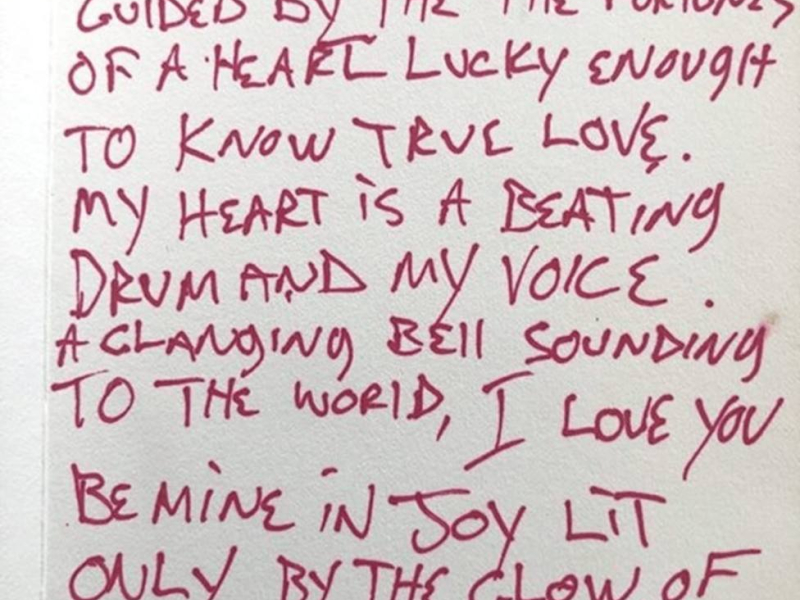 GUIDED BY THE THE FORTUNES
OF A HEART LUCKY ENOUGH
TO KNOW TRUE LOVE.
MY HEART iS A BEATiNg
DRUM AND MY VOICE.
A CLANgiNg BEll SOUNDiNg
TO THE WORlD, I LOVE YOU
BE MiNE iN JOY LiT
ONLY BY THE GLOW OF